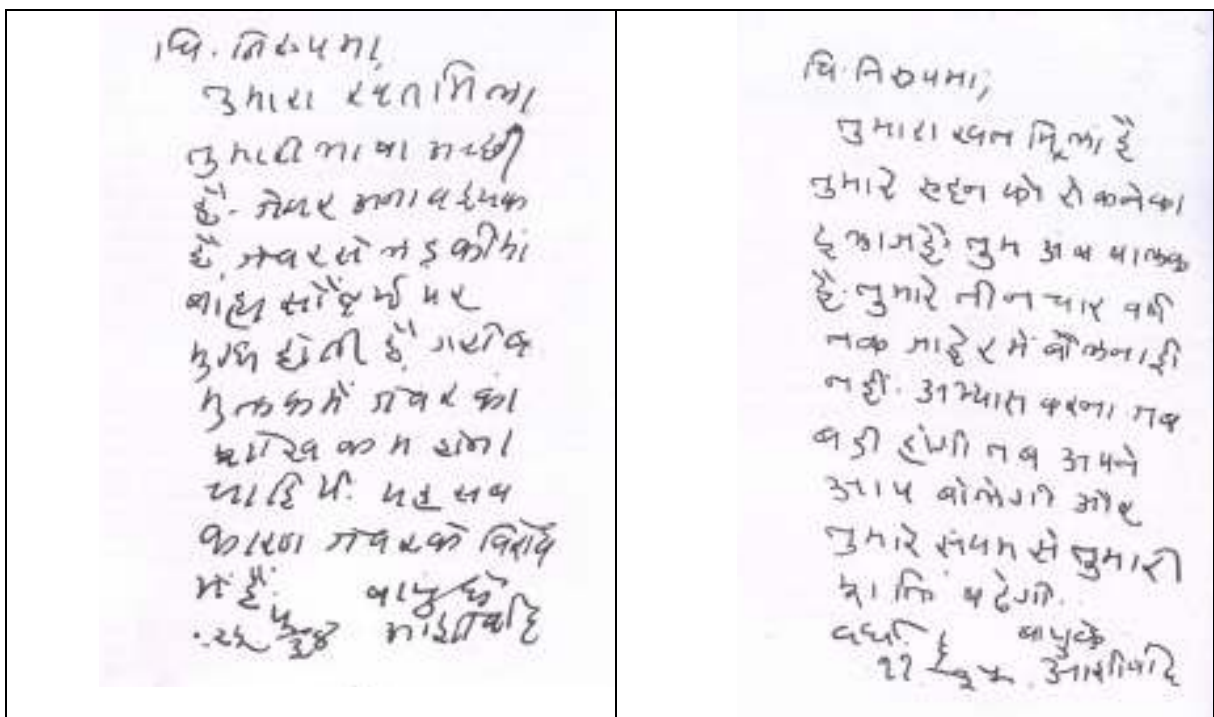 चि. निरुपमा,
तुमारा खत मिला
तुमारी भाषा अच्छी
है. जेवर अनावश्यक
है, जेवरसे लड़कीमां
बाह्य सौंदर्य पर
मुग्ध होती हैं, गरीब
मुलकमें जेवरका
शोख कम होना
चाहिये. यह सब
कारण जेवरके विरोध
में हैं.
बापुके
आशीर्वाद
चि. निरुपमा,
तुमारा खत मिला है
तुमारे रुदन को रोकनेका
इलाज है. तुम अब बालक
है. तुमारे तीन चार वर्ष
तक जाहेर में बोलना ही
नहीं. अभ्यास करना जब
बडी होगी तब अपने
आप बोलेगी और
तुमारे संयम से तुमारी
शक्ति बढेगी.
वर्धा
बापुके
आशीर्वाद